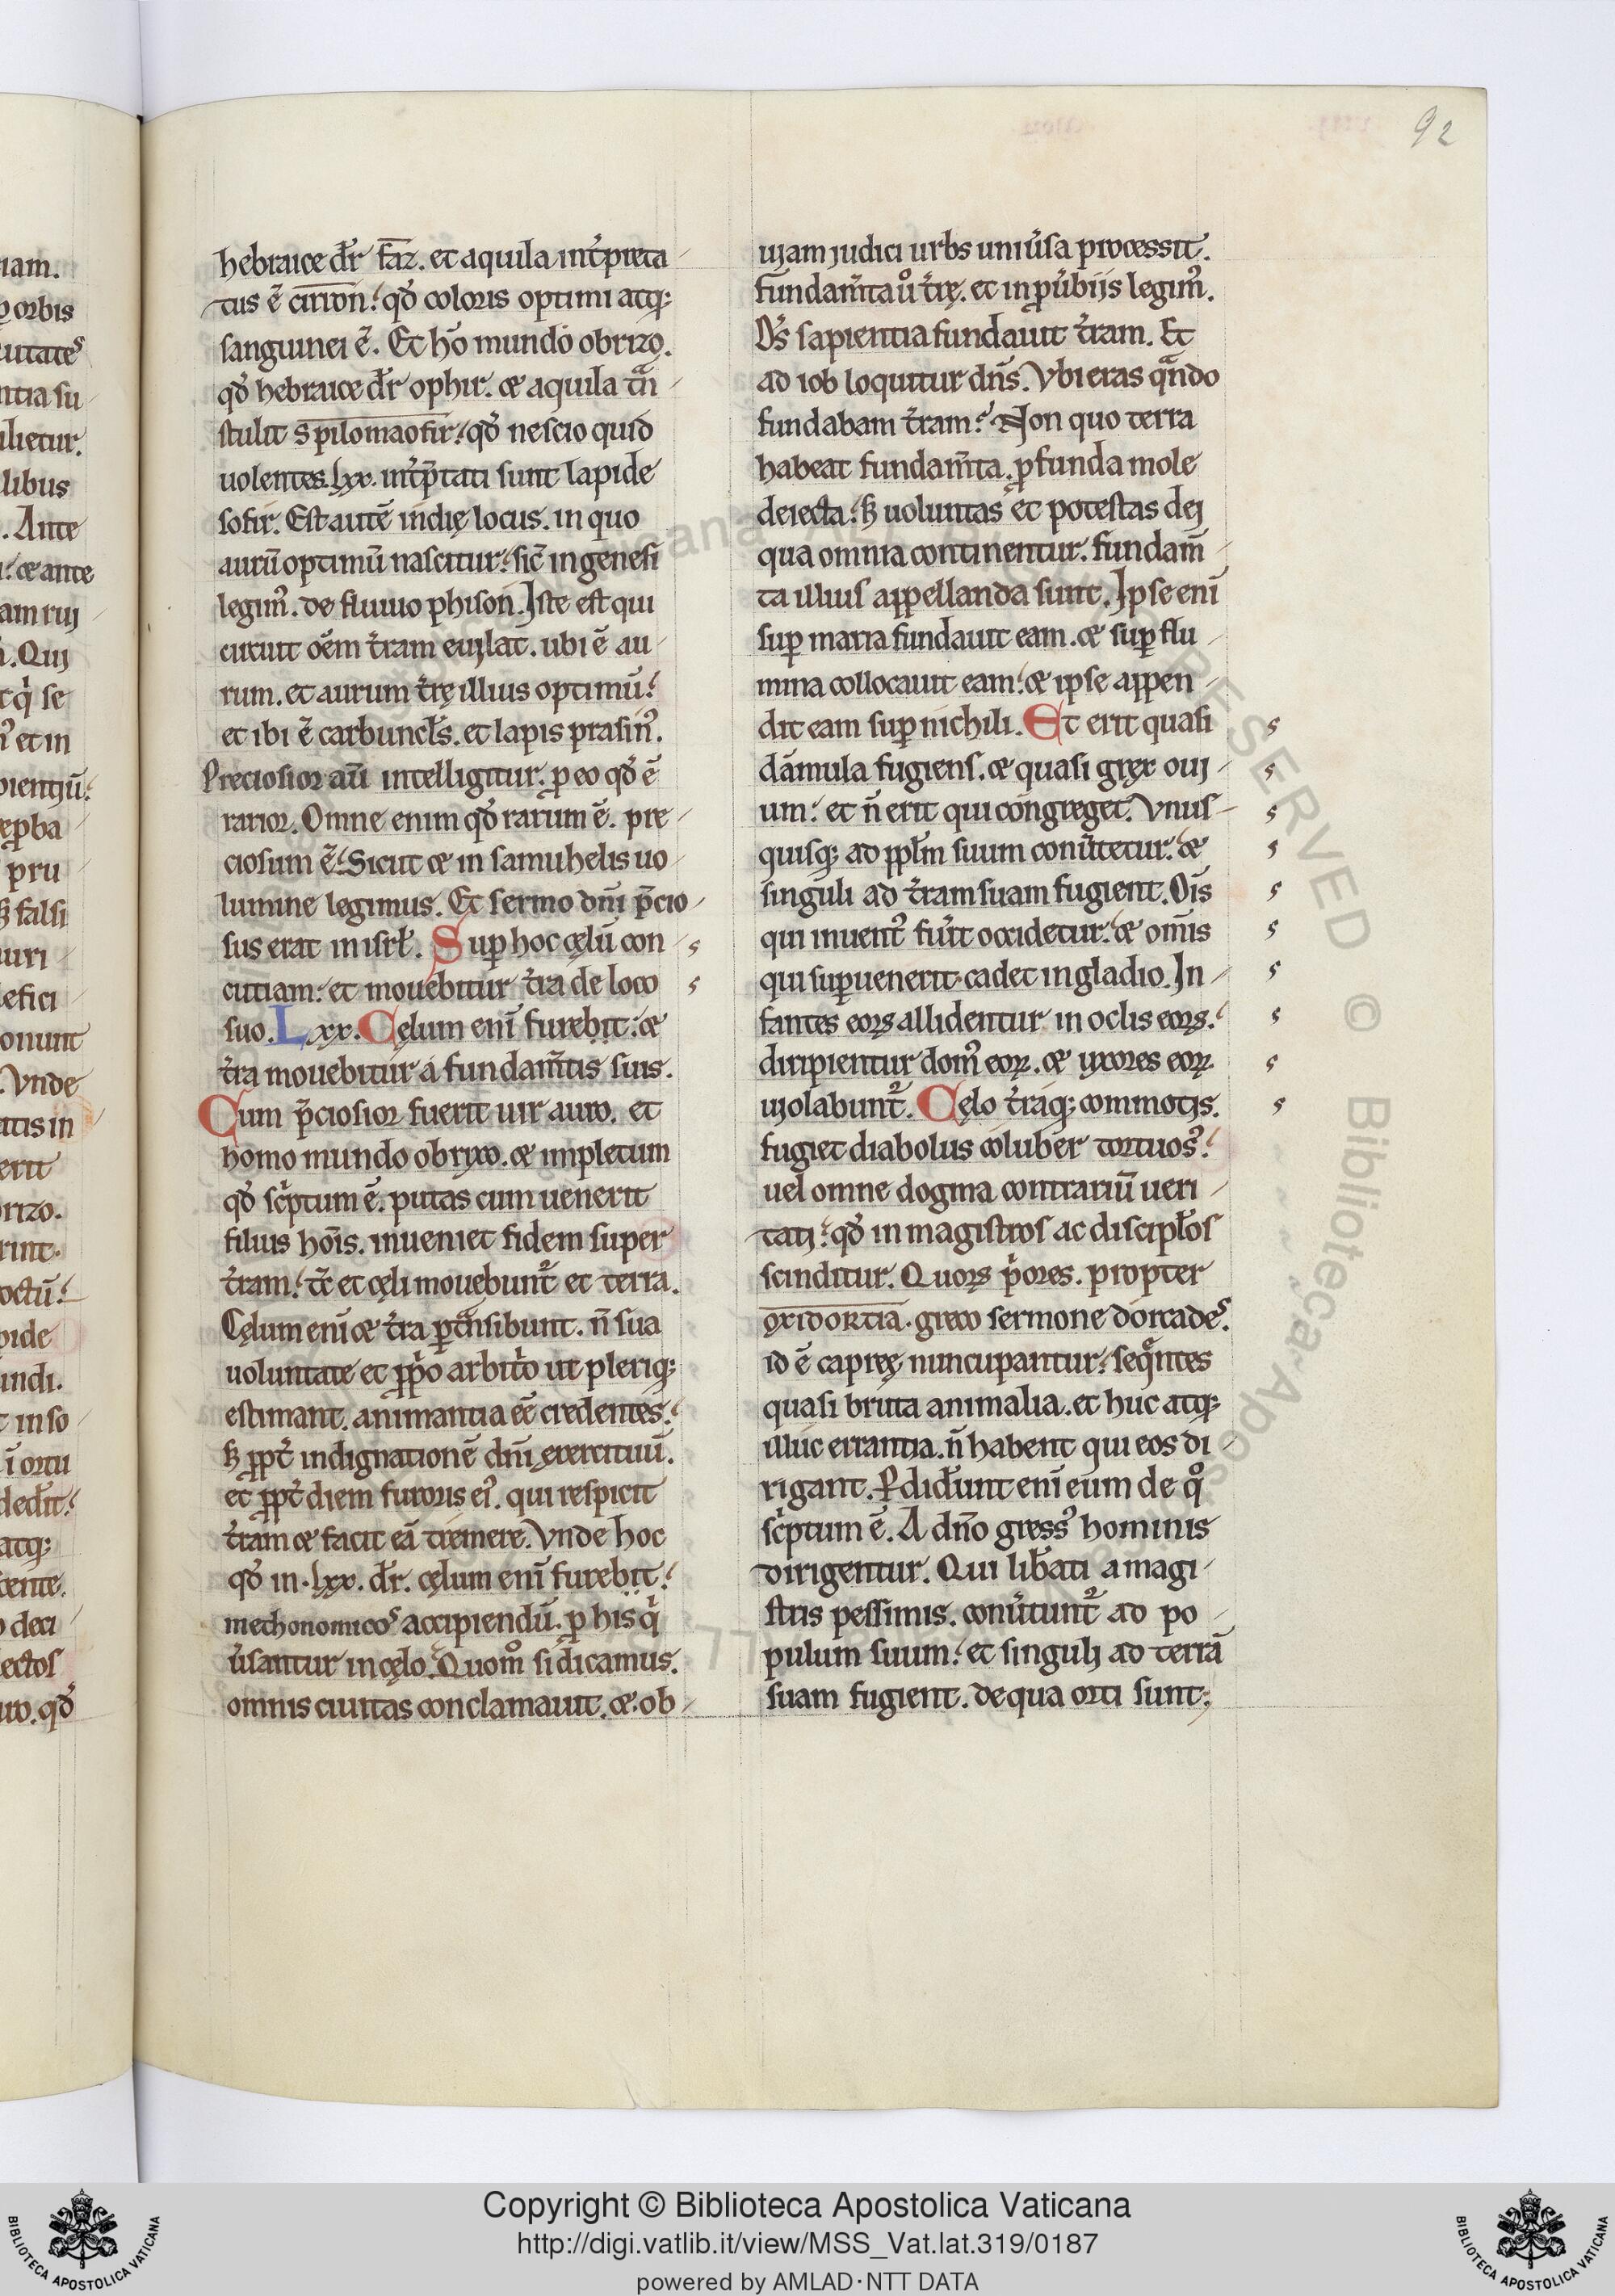 92
hebraice dr̄ faz. et aquila int̓preta-
tus ē cirron. qd̓ coloris optimi atq;
sanguinei ē. Et hō mundo obrizo.
qd̓ hebraice dr̄ ophir. & aquila tn̄-
stulit spilomaofir. qd̓ nescio quid
uolentes .lxx. int̓p̄tati sunt lapide
sofir. Est autē indię locus. in quo
aurū optimū nascitur. sic̄ in genesi
legim᾽. de fluuio phison. Iste est qui
circuit oēm t̓ram euilat. ubi ē au-
rum. et aurum t̓rę illius optimū.
et ibi ē carbuncl̄s. et lapis prasin᾽.
Preciosior aūi intelligitur. p eo qd̓ ē
rarior. Omne enim qd̓ rarum ē. pre-
ciosum ē. Sicut & in samuhelis uo-
lumine legimus. Et sermo dn̄i p̄cio-
sus erat in isrl̄. Sup hoc cęlū con-
cutiam. et mouebitur t̓ra de loco
suo. Lxx. Cęlum enī furebit. &
t̓ra mouebitur a fundam̄tis suis.
Cum p̄ciosior fuerit uir auro. et
homo mundo obryzo. & impletum
qd̓ sc̓ptum ē. putas cum uenerit
filius hoīs. inueniet fidem super
t̓ram. tc̄ et cęli mouebunt᾽ et terra.
Cęlum enī & t̓ra ptn̄sibunt. n̄ sua
uoluntate et pp̓o arbit̓o ut pleriq;
estimant. animantia eē credentes.
ꝫ ppt̓ indignationē dn̄i exercituū.
et ppt̓ diem furoris ei᾽. qui respicit
t̓ram & facit eā tremere. Vnde hoc
qd̓ in .lxx. dr̄. cęlum enī furebit.
mechonomicos accipiendū. p his q̓
ūsantur in cęlo. Quom̊ si dicamus.
omnis ciuitas conclamauit. & ob-
uiam iudici urbs uniūsa processit.
fundam̄ta ů t̓rę. et in pūbiis legim᾽.
Ds̄ sapientia fundauit t̓ram. Et
ad iob loquitur dn̄s. Vbi eras qndo
fundabam t̓ram? Non quo terra
habeat fundam̄ta. pfunda mole
deiecta. ꝫ uoluntas et potestas dei
qua omnia continentur. fundam̄-
ta illius appellanda sunt. Ipse enī
sup maria fundauit eam. & sup flu-
mina collocauit eam. & ipse appen-
dit eam sup nichili. Et erit quasi
dāmula fugiens. & quasi gręx oui-
um. et n̄ erit qui congreget. Vnus-
quisq; ad ppl̄m suum conūtetur. &
singuli ad t̓ram suam fugient. Oīs
qui inuent᾽ fūit occidetur. & om̄is
qui supuenerit. cadet in gladio. In-
fantes eoꝝ allidentur in oclis eoꝝ.
diripientur dom᾽ eoꝝ. & uxores eoꝝ
uiolabunt᾽. Cęlo t̓raq; commotis.
fugiet diabolus coluber tortuos᾽.
uel omne dogma contrariū ueri-
tati. qd̓ in magistros ac discipl̄os
scinditur. Quoꝝ p̓ores. propter
oxidortia. greco sermone dorcades.
id ē capreę nuncupantur. seqntes
quasi bruta animalia. et huc atq;
illuc errantia. n̄ habent qui eos di-
rigant. Pdid̓unt enī eum de q̊
sc̓ptum ē. A dn̄o gress᾽ hominis
dirigentur. Qui lib̄ati a magi-
stris pessimis. conūtunt᾽ ad po-
pulum suum. et singuli ad terrā
suam fugient. de qua orti sunt;
Copyright © Biblioteca Apostolica Vaticana
http://digi.vatlib.it/view/MSS_Vat.lat.319/0187
powered by AMLAD·NTT DATA
BIBLIOTECA APOSTOLICA VATICANA
BIBLIOTECA APOSTOLICA VATICANA